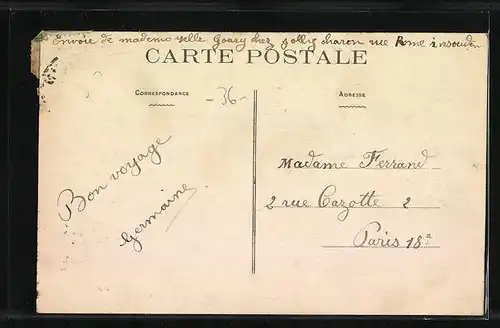 Envoie de mademoiselle Goury chez
CARTE POSTALE
CORRESPONDANCE
-36-
ADRESSE
Bon voyage
Germaine
Madame Ferrand
2 rue Cazotte 2
Paris 18e